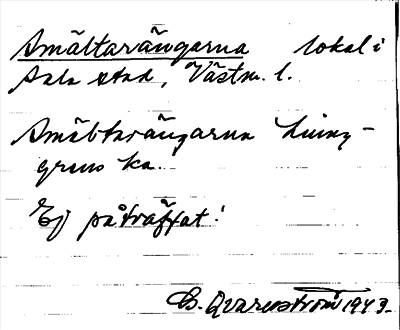 Smältarängarna lokal i
Sala stad, Västm. l.
Smältarängarna Liung-
grens ka.
Ej påträffat!
G. Qvarnström 1943.